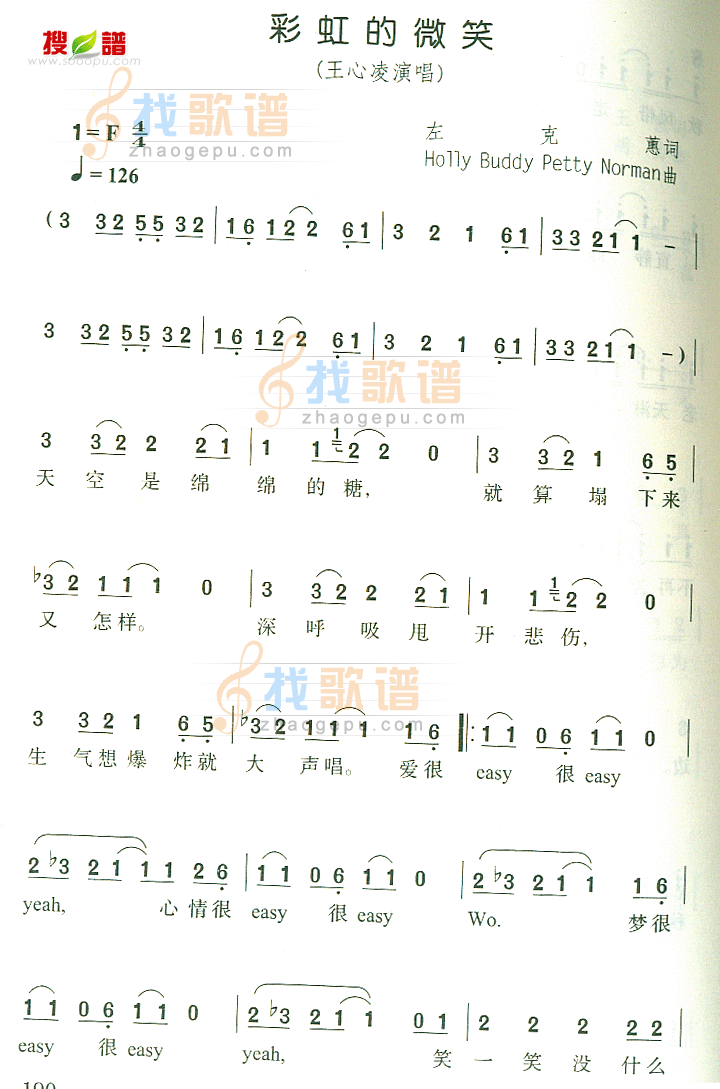 彩虹的微笑
搜谱
www.sooopu.com
(王心凌演唱)
找歌谱
zhaogepu.com
1=F 4/4
左克蕙词
♩=126
Holly Buddy Petty Norman曲
(3 32 55 32 | 16 12 2 61 | 3 2 1 61 | 33 21 1 - |
3 32 55 32 | 16 12 2 61 | 3 2 1 61 | 33 21 1 -) |
找歌谱
zhaogepu.com
3 32 2 21 | 1 1 1 2 2 0 | 3 32 1 65 |
天空是绵绵的糖, 就算塌下来
♭32 11 1 0 | 3 32 2 21 | 1 1 1 2 2 0 |
又怎样。 深呼吸甩开悲伤,
找歌谱
zhaogepu.com
3 32 1 65 | ♭32 11 1 16 |: 11 06 11 0 |
生气想爆炸就大声唱。 爱很 easy 很easy
2♭3 21 11 26 | 11 06 11 0 | 2♭3 21 1 16 |
yeah, 心情很 easy 很easy Wo. 梦很
11 06 11 0 | 2♭3 21 1 01 | 2 2 2 22 |
easy 很easy yeah, 笑一笑没什么